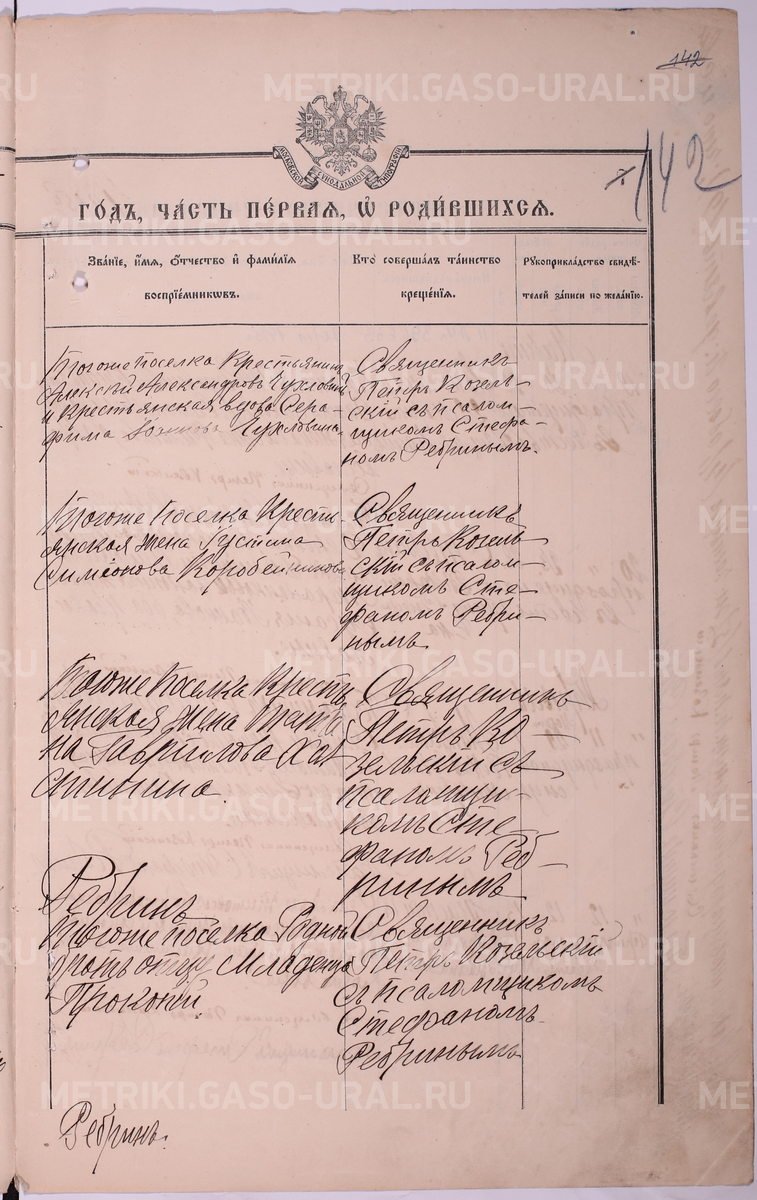 142
142
МОСКОВСКОЙ СѴНОДАЛЬНОЙ ТИПОГРАФІИ
ГОДЪ, ЧАСТЬ ПЕРВАЯ, Ѡ РОДИВШИХСЯ.
Званіе, имя, отчество и фамилія воспріемниковъ.
Кто совершалъ таинство крещенія.
Рукоприкладство свидѣтелей записи по желанію.
Тогоже поселка Крестьянинъ
Алексій Александровъ Чухловинъ
и крестьянская вдова Сера-
фима Чухловина.
Священникъ
Петръ Козель-
скій съ псалом-
щикомъ Стефа-
номъ Ребринымъ.
Тогоже поселка Кресть-
янская жена Іустина
Симеонова Коробейникова
Священникъ
Петръ Козель-
скій съ псалом-
щикомъ Сте-
фаномъ Ребри-
нымъ.
Тогоже поселка Кресть
янская жена Татіа
на Гаврилова
Священникъ
Петръ Ко-
зельскій съ
псаломщи-
комъ Сте-
фаномъ Реб-
ринымъ
Ребринъ
Тогоже поселка Родной
братъ отцу Младенца
Прокопій.
Священникъ
Петръ Козельскій
съ псаломщикомъ
Стефаномъ
Ребринымъ
Ребринъ.
METRIKI.GASO-URAL.RU